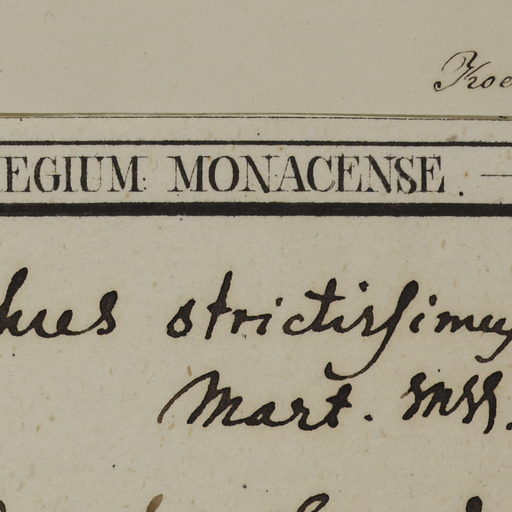 EGIUM MONACENSE.
strictissimus
Mart. Mss.